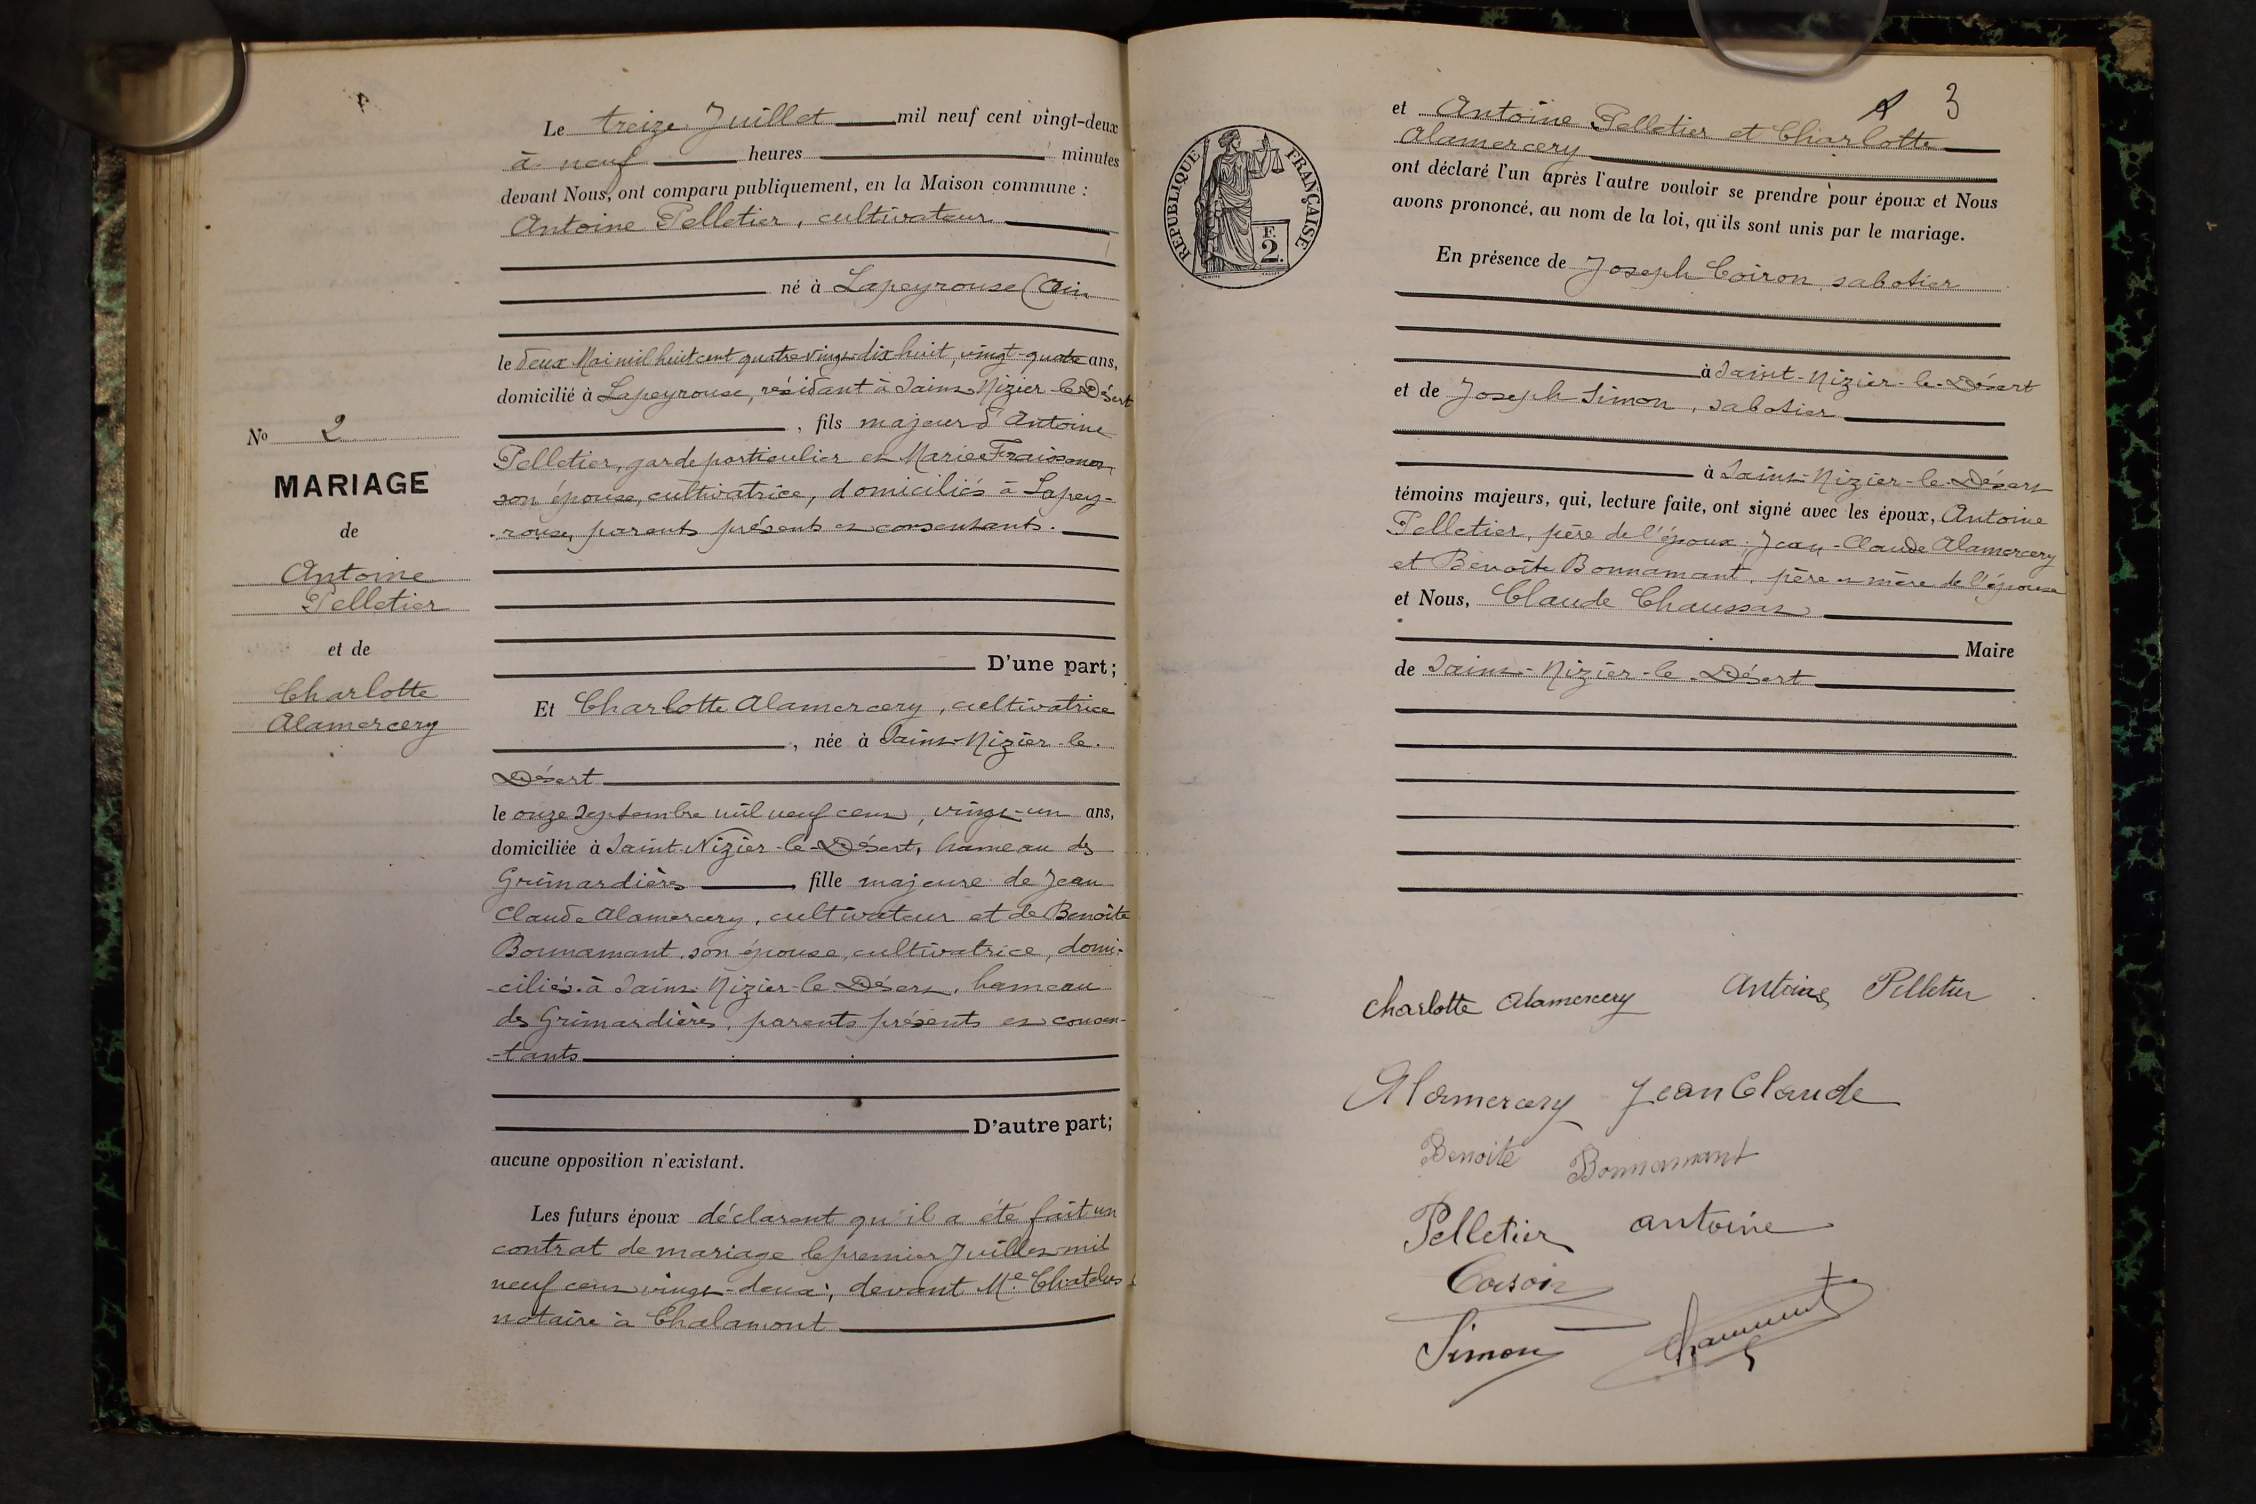 Le treize Juillet mil neuf cent vingt-deux
à neuf heures minutes
devant Nous, ont comparu publiquement, en la Maison commune :
Antoine Pelletier, cultivateur
né à Lapeyrouse (Ain
le deux Mai mil huit cent quatre vingt-dix-huit, vingt-quatre ans,
domicilié à Lapeyrouse, résidant à Saint-Nizier-le-Désert
, fils majeur d'Antoine
Pelletier, garde particulier et Marie
son épouse, cultivatrice, domiciliés à Lapey-
-rouse, parents présents et consentants.
D'une part;
Et Charlotte Alamercery, cultivatrice
, née à Saint-Nizier-le-
Désert
le onze Septembre mil neuf cent, vingt-un ans,
domiciliée à Saint-Nizier-le-Désert, hameau des
Grimardières, fille majeure de Jean
Claude Alamercery, cultivateur et de Benoîte
Bonnamant, son épouse, cultivatrice, domi-
-ciliés à Saint-Nizier-le-Désert, hameau
des Grimardières, parents présents et consen-
-tants
D'autre part;
aucune opposition n'existant.
Les futurs époux déclarent qu'il a été fait un
contrat de mariage le premier Juillet mil
neuf cent vingt-deux, devant Me Chatelus
notaire à Chalamont
No 2
MARIAGE
de
Antoine
Pelletier
et de
Charlotte
Alamercery
3
RÉPUBLIQUE FRANÇAISE
F.
2.
et Antoine Pelletier et Charlotte
Alamercery
ont déclaré l'un après l'autre vouloir se prendre pour époux et Nous
avons prononcé, au nom de la loi, qu'ils sont unis par le mariage.
En présence de Joseph Coiron, sabotier
à Saint-Nizier-le-Désert
et de Joseph Simon, sabotier
à Saint-Nizier-le-Désert
témoins majeurs, qui, lecture faite, ont signé avec les époux, Antoine
Pelletier, père de l'époux, Jean-Claude Alamercery
et Benoîte Bonnamant, père et mère de l'épouse
et Nous, Claude
Maire
de Saint-Nizier-le-Désert
Charlotte Alamercery Antoine Pelletier
Alamercery Jean Claude
Benoite Bonnamant
Pelletier antoine
Simon